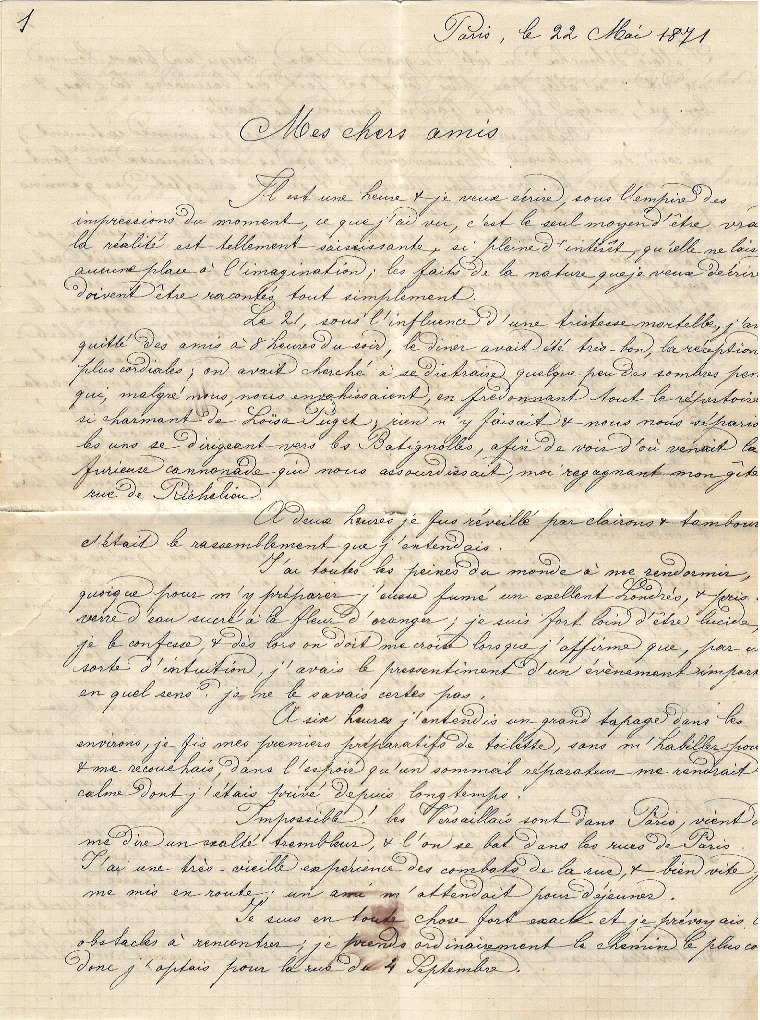 1
Paris, le 22 Mai 1871
Mes chers amis
Il est une heure & je veux écrire, sous l'empire des
impressions du moment, ce que j'ai vu, c'est le seul moyen d'être vra
la réalité est tellement saisissante, si pleine d'intérêt, qu'elle ne lais
aucune place à l'imagination; les faits de la nature que je veux décrire
doivent être racontés tout simplement.
Le 21, sous l'influence d'une tristesse mortelle, j'av
quitté des amis à 8 heures du soir, le diner avait été très-bon, la réception
plus cordiales; on avait cherché à se distraire quelque peu des sombres pen
qui, malgré nous, nous envahissaient, en fredonnant tout le répertoire
si charmant de Loïsa Puget; rien n'y faisait & nous nous séparions
les uns se dirigeant vers les Batignolles, afin de voir d'où venait la
furieuse cannonade qui nous assourdissait, moi regagnant mon gîte
rue de Richelieu.
A deux heures je fus réveillé par clairons & tambour
c'était le rassemblement que j'entendais.
J'ai toutes les peines du monde à me rendormir,
quoique pour m'y préparer j'eusse fumé un exellent Londrès, & pris
verre d'eau sucré à la fleur d'oranger; je suis fort loin d'être lucide,
je le confesse, & dès lors on doit me croire lorsque j'affirme que, par u
sorte d'intuition, j'avais le pressentiment d'un évènement import
en quel sens? je ne le savais certes pas.
A six heures j'entendis un grand tapage dans les
environs, je fis mes premiers préparatifs de toilette, sans m'habiller pour
& me recouchais, dans l'espoir qu'un sommeil réparateur me rendrait
calme dont j'étais privé depuis longtemps.
Impossible! les Versaillais sont dans Paris, vient d
me dire un exalté trembleur, & l'on se bat dans les rues de Paris.
J'ai une très-vieille expérience des combats de la rue, & bien vite j
me mis en route; un ami m'attendait pour déjeuner.
Je suis en toute chose fort exact et je prévoyais
obstacles à rencontrer; je prends ordinairement le chemin le plus co
donc j'optais pour la rue du 4 Septembre.